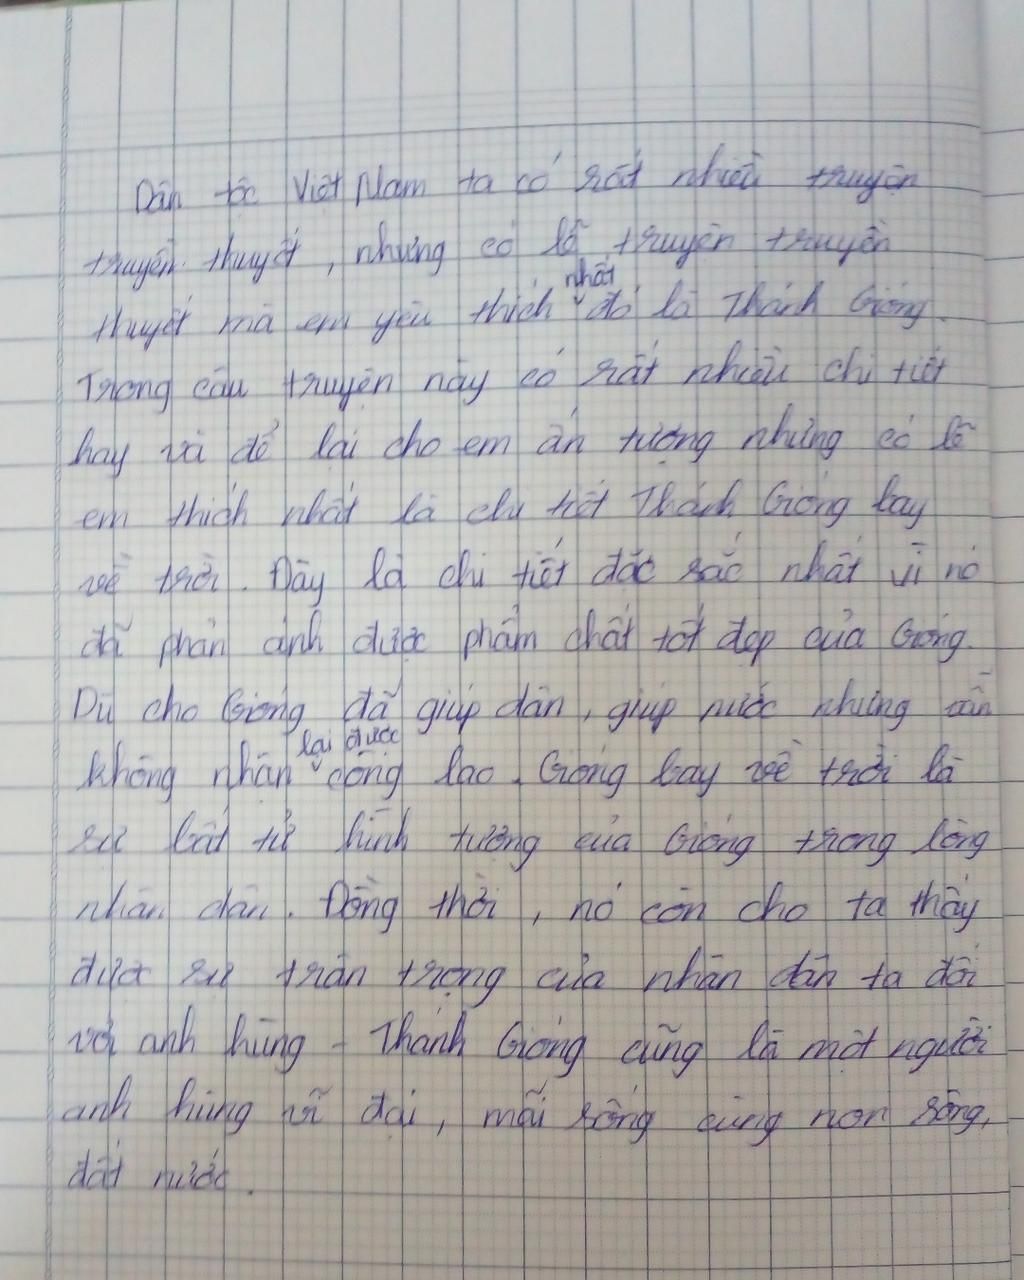 Dân tộc Việt Nam ta có rất nhiều truyện
truyền thuyết, nhưng có lẽ truyện truyền
thuyết mà em yêu thích nhất đó là Thánh Gióng.
Trong câu truyện này có rất nhiều chi tiết
hay và để lại cho em ấn tượng nhưng có lẽ
em thích nhất là chi tiết Thánh Gióng bay
về trời. Đây là chi tiết đặc sắc nhất vì nó
đã phản ánh được phẩm chất tốt đẹp của Gióng.
Dù cho Gióng đã giúp dân, giúp nước nhưng
không nhận lại được công lao. Gióng bay về trời là
sự bất tử hình tượng của Gióng trong lòng
nhân dân. Đồng thời, nó còn cho ta thấy
được sự trân trọng của nhân dân ta đối
với anh hùng - Thánh Gióng cũng là một người
anh hùng vĩ đại, mãi sống cùng non sông,
đất nước.